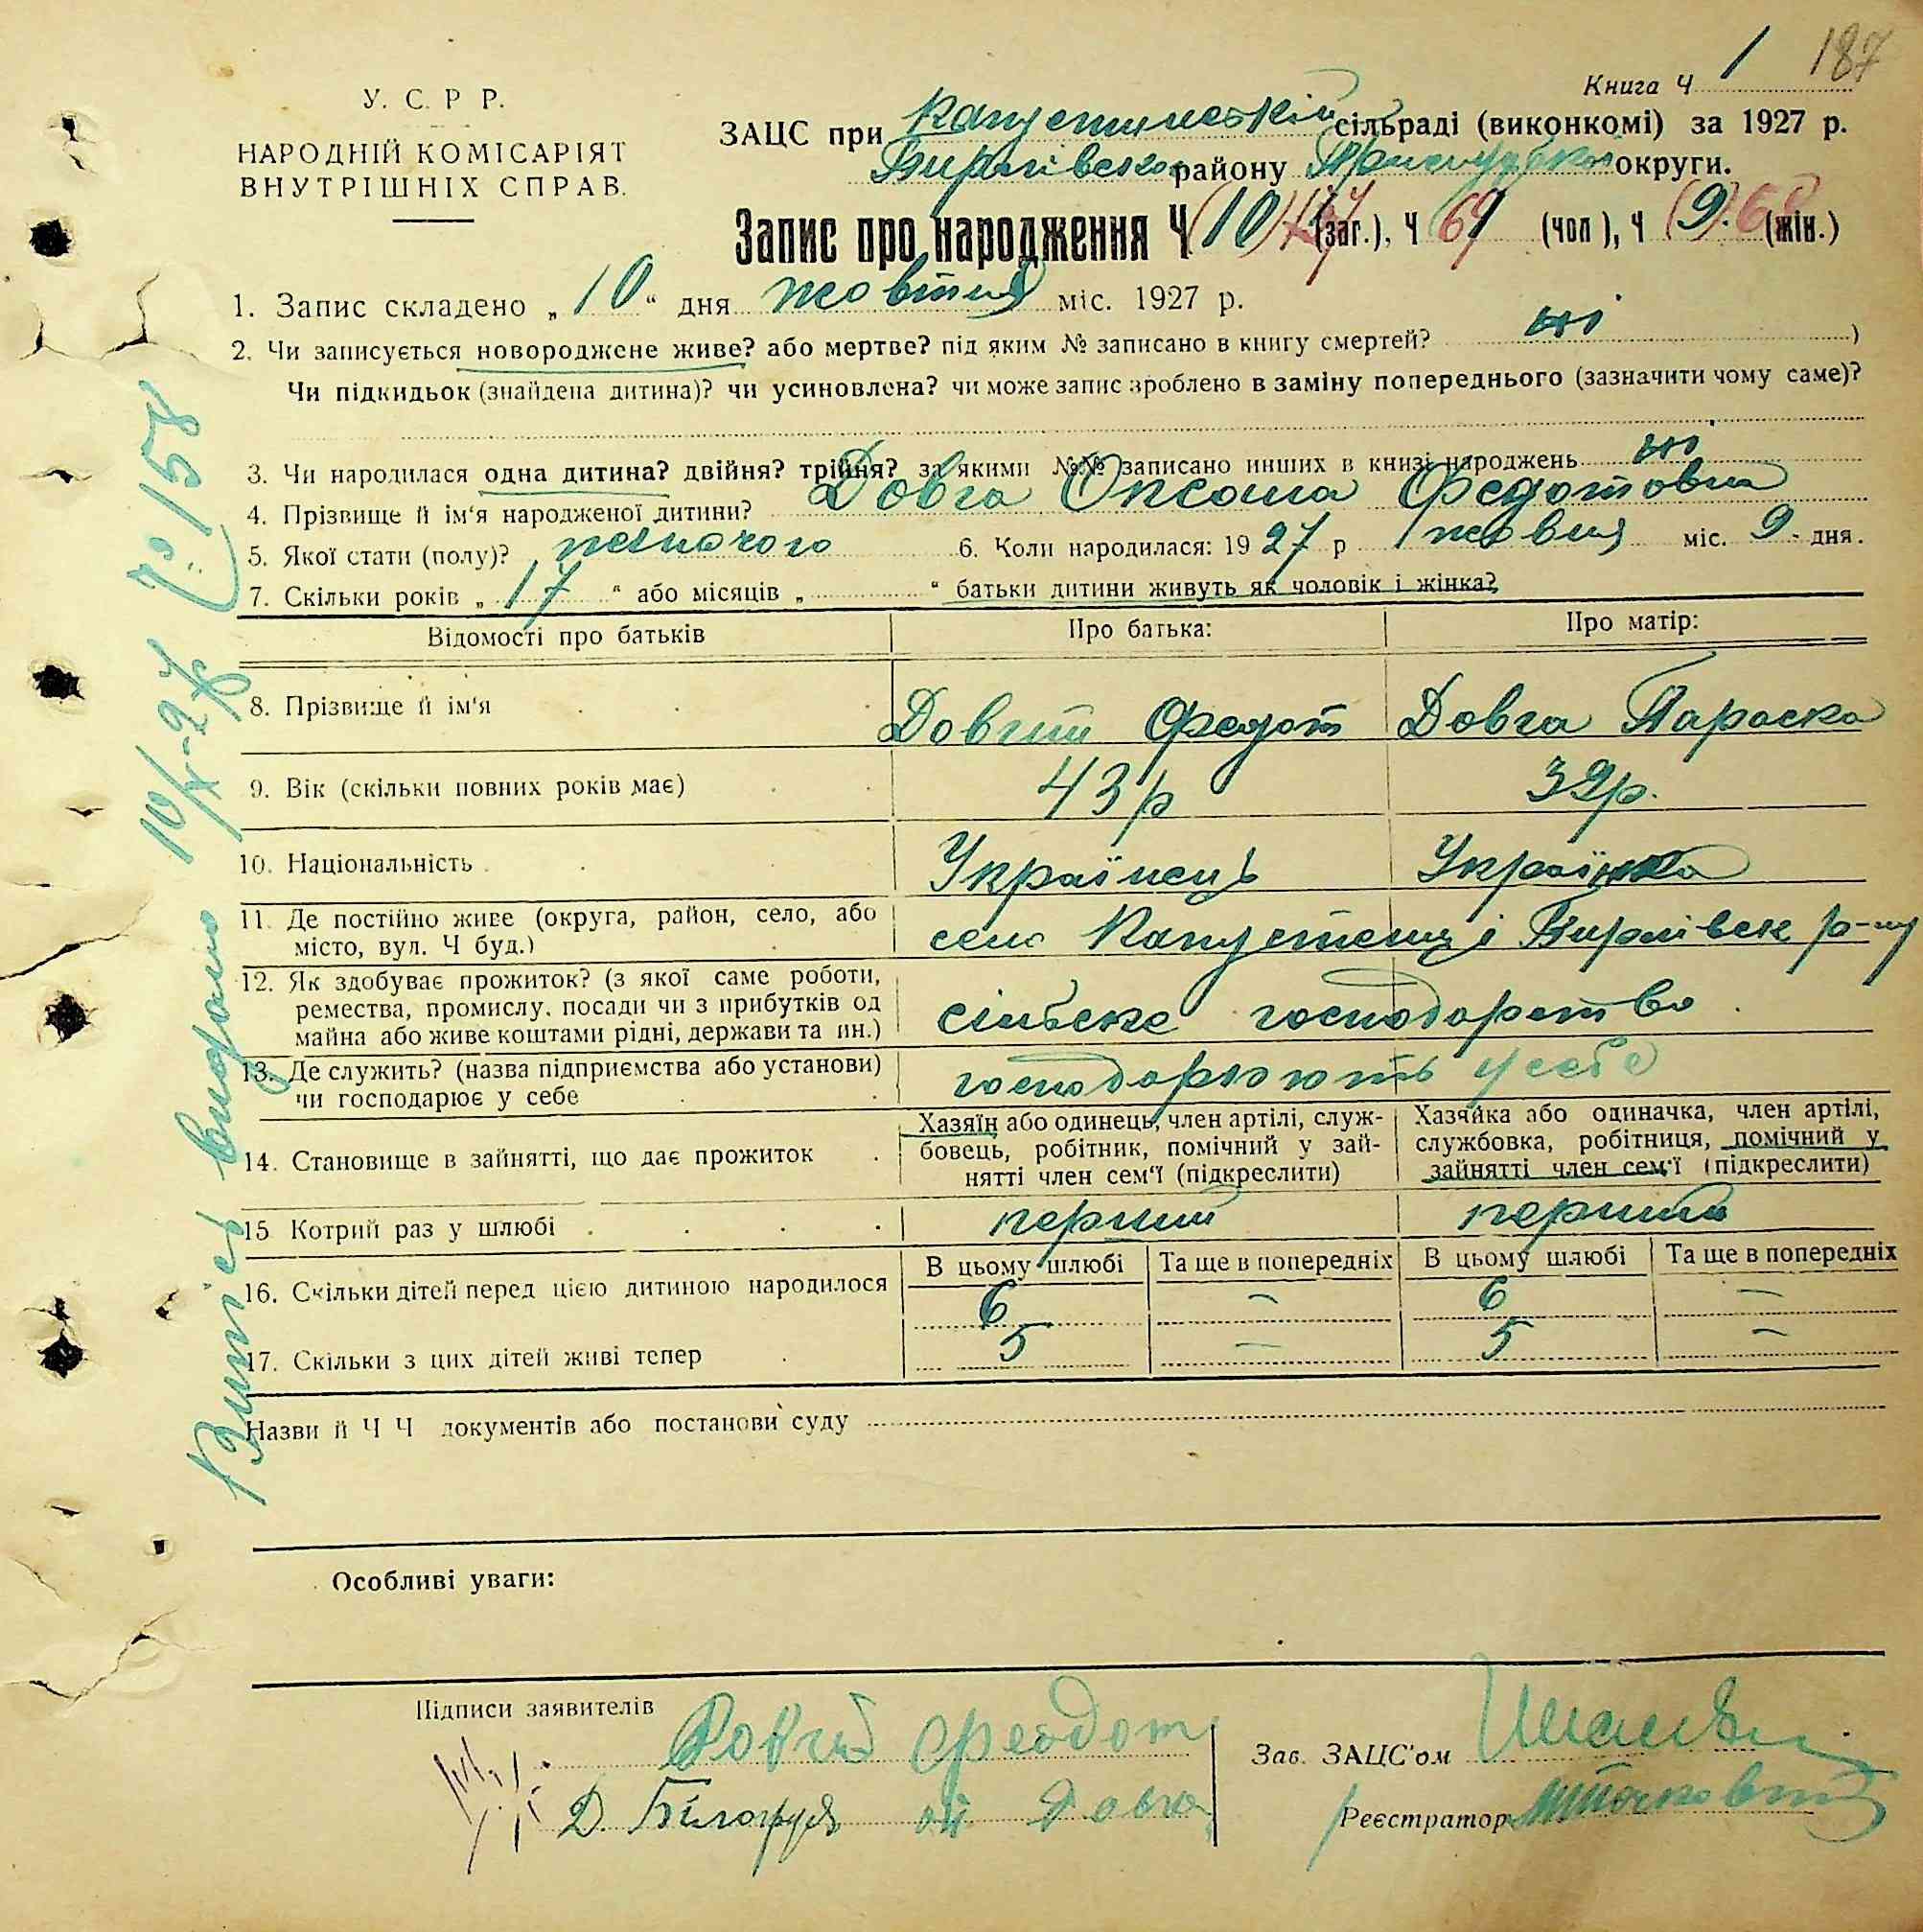 Книга Ч 1 187
У. С. Р Р.
НАРОДНІЙ КОМІСАРІЯТ
ВНУТРІШНІХ СПРАВ.
ЗАЦС при Капустинській сільраді (виконкомі) за 1927 р.
району округи.
Запис про народження Ч (10) (заг.), Ч 69 (чол), Ч (9) 68 (жін.)
1. Запис складено „ 10 “ дня жовтня міс. 1927 р.
2. Чи записується новороджене живе? або мертве? під яким № записано в книгу смертей? ні )
Чи підкидьок (знайдена дитина)? чи усиновлена? чи може запис зроблено в заміну попереднього (зазначити чому саме)?
3. Чи народилася одна дитина? двійня? трійня? за якими №№ записано инших в книзі народжень ні
4. Прізвище й ім‘я народженої дитини? Довга Оксана Федотовна
5. Якої стати (полу)? жіночого 6. Коли народилася: 19 27 р жовтня міс. 9 дня.
7. Скільки років „ 17 “ або місяців „ “ батьки дитини живуть як чоловік і жінка?
Відомості про батьків Про батька: Про матір:
8. Прізвище й ім‘я Довгий Федот Довга Параска
9. Вік (скільки повних років має) 43 р 39 р.
10. Національність Українець Українка
11. Де постійно живе (округа, район, село, або
місто, вул. Ч буд.) село Капустенці р-ну
12. Як здобуває прожиток? (з якої саме роботи,
ремества, промислу, посади чи з прибутків од
майна або живе коштами рідні, держави та ин.) сільське господарство
13. Де служить? (назва підприємства або установи)
чи господарює у себе господарюють у себе
14. Становище в зайнятті, що дає прожиток
Хазяїн або одинець, член артілі, служ-
бовець, робітник, помічний у зай-
нятті член сем‘ї (підкреслити)
Хазяйка або одиначка, член артілі,
службовка, робітниця, помічний у
зайнятті член сем‘ї (підкреслити)
15 Котрий раз у шлюбі перший перший
В цьому шлюбі Та ще в попередніх В цьому шлюбі Та ще в попередніх
16. Скільки дітей перед цією дитиною народилося 6 – 6 –
17. Скільки з цих дітей живі тепер 5 – 5 –
Назви й Ч Ч документів або постанови суду
Особливі уваги:
Підписи заявителів Довгий Феодот
Д. Білогруд Довга
Зав. ЗАЦС‘ом
Реєстратор
Витіг видано 10/X-27 р. 158